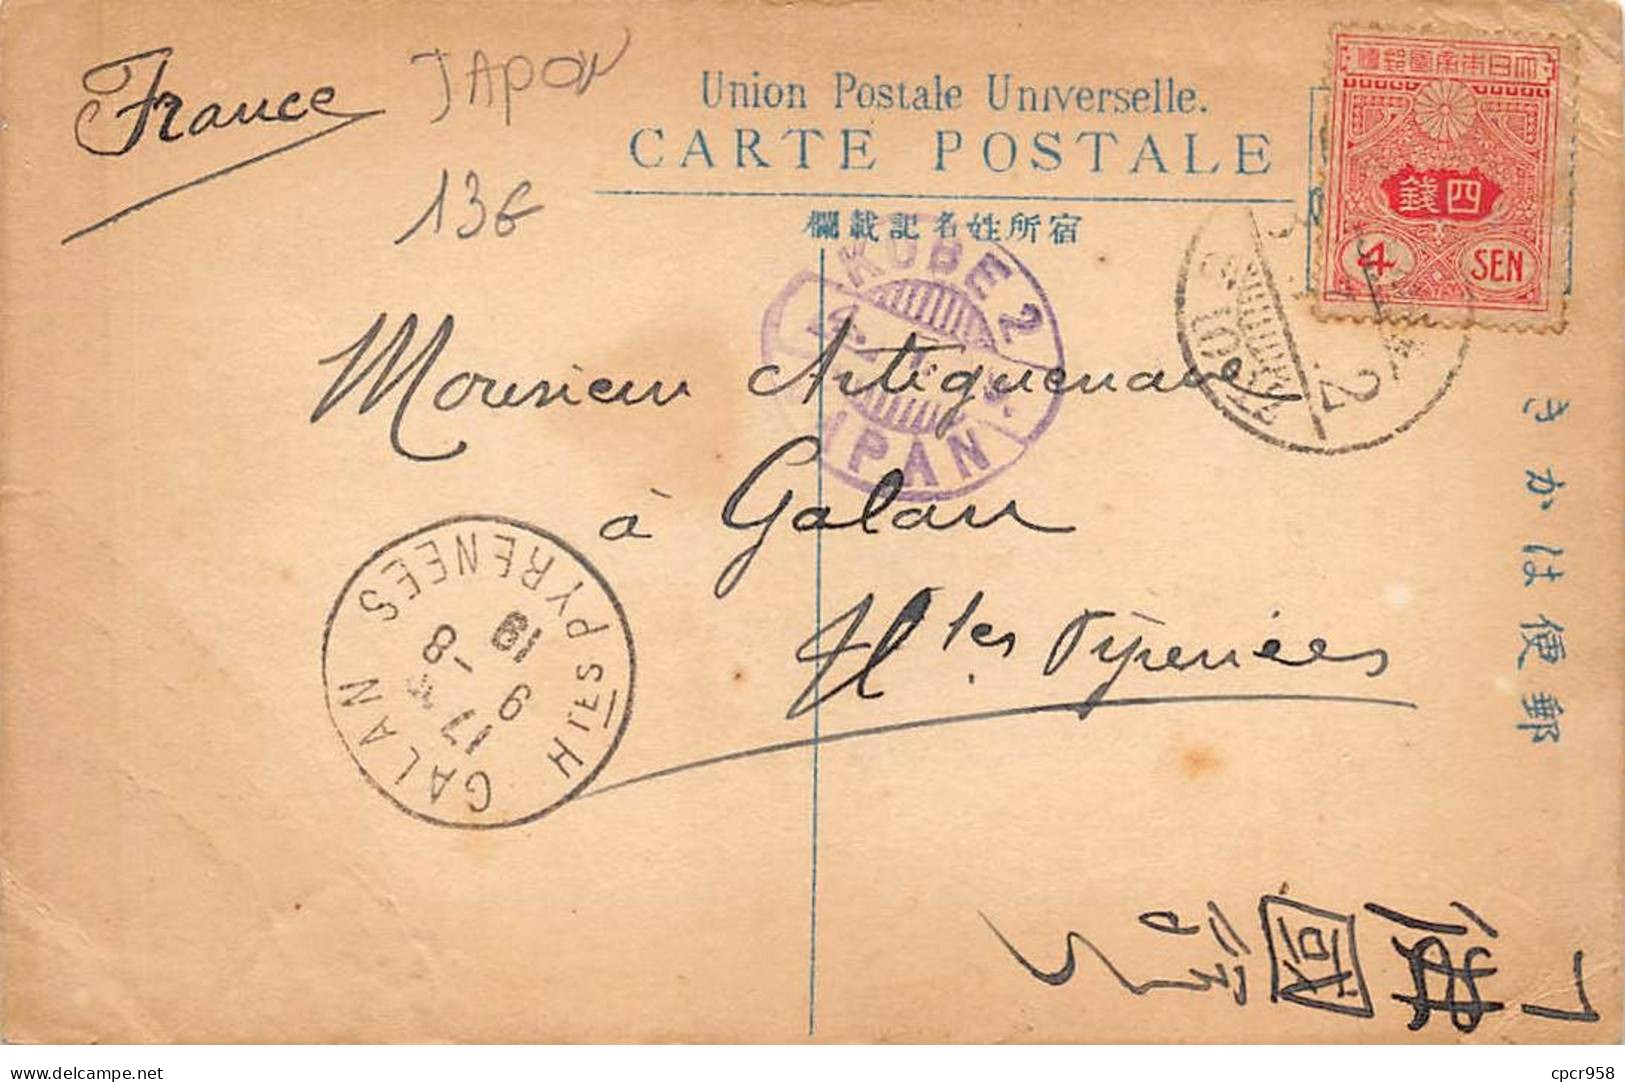 France
JAPON
Union Postale Universelle.
CARTE POSTALE
13€
欄載記名姓所宿
大日本帝國郵便
四錢
4 SEN
KOBE 2
IPAN
Monsieur Artiguenave
à Galan
Htes Pyrénées
GALAN
HTES PYRENEES
17
9 -8
19
2
きかは便郵
佛國行
delcampe.net
cpcr958